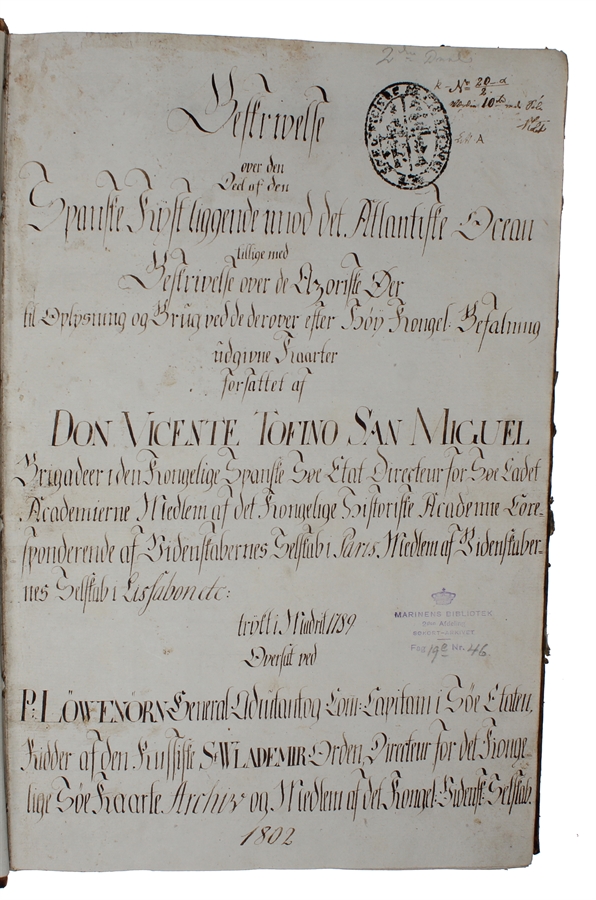 2den Deel
Beskrivelse
over den
Deel af den
Spanske Kyst liggende imod det Atlantiske Ocean
tillige med
Beskrivelse over de Azoriske Øer
til Oplysning og Brug ved de derover efter Høy Kongel: Befalning
udgivne Kaarter
forfattet af
DON VICENTE TOFINO SAN MIGUEL
Brigadeer i den Kongelige Spanske Søe Etat, Directeur for Søe Cadet
Academierne Medlem af det Kongelige Historiske Academie Corre-
sponderende af Videnskabernes Selskab i Paris, Medlem af Videnskaber-
nes Selskab i Lissabon etc:
trykt i Madrid 1789
Oversat ved
P: LÖWENÖRN General Adiutant og Com: Capitain i Søe Etaten,
Ridder af den Russiske St WLADEMIR Orden, Directeur for det Konge-
lige Søe Kaarte Archiv og Medlem af det Kongel: Vidensk: Selskab.
1802
No 20-a
2
10de
A
MARINENS BIBLIOTEK
Fag 19e Nr. 46